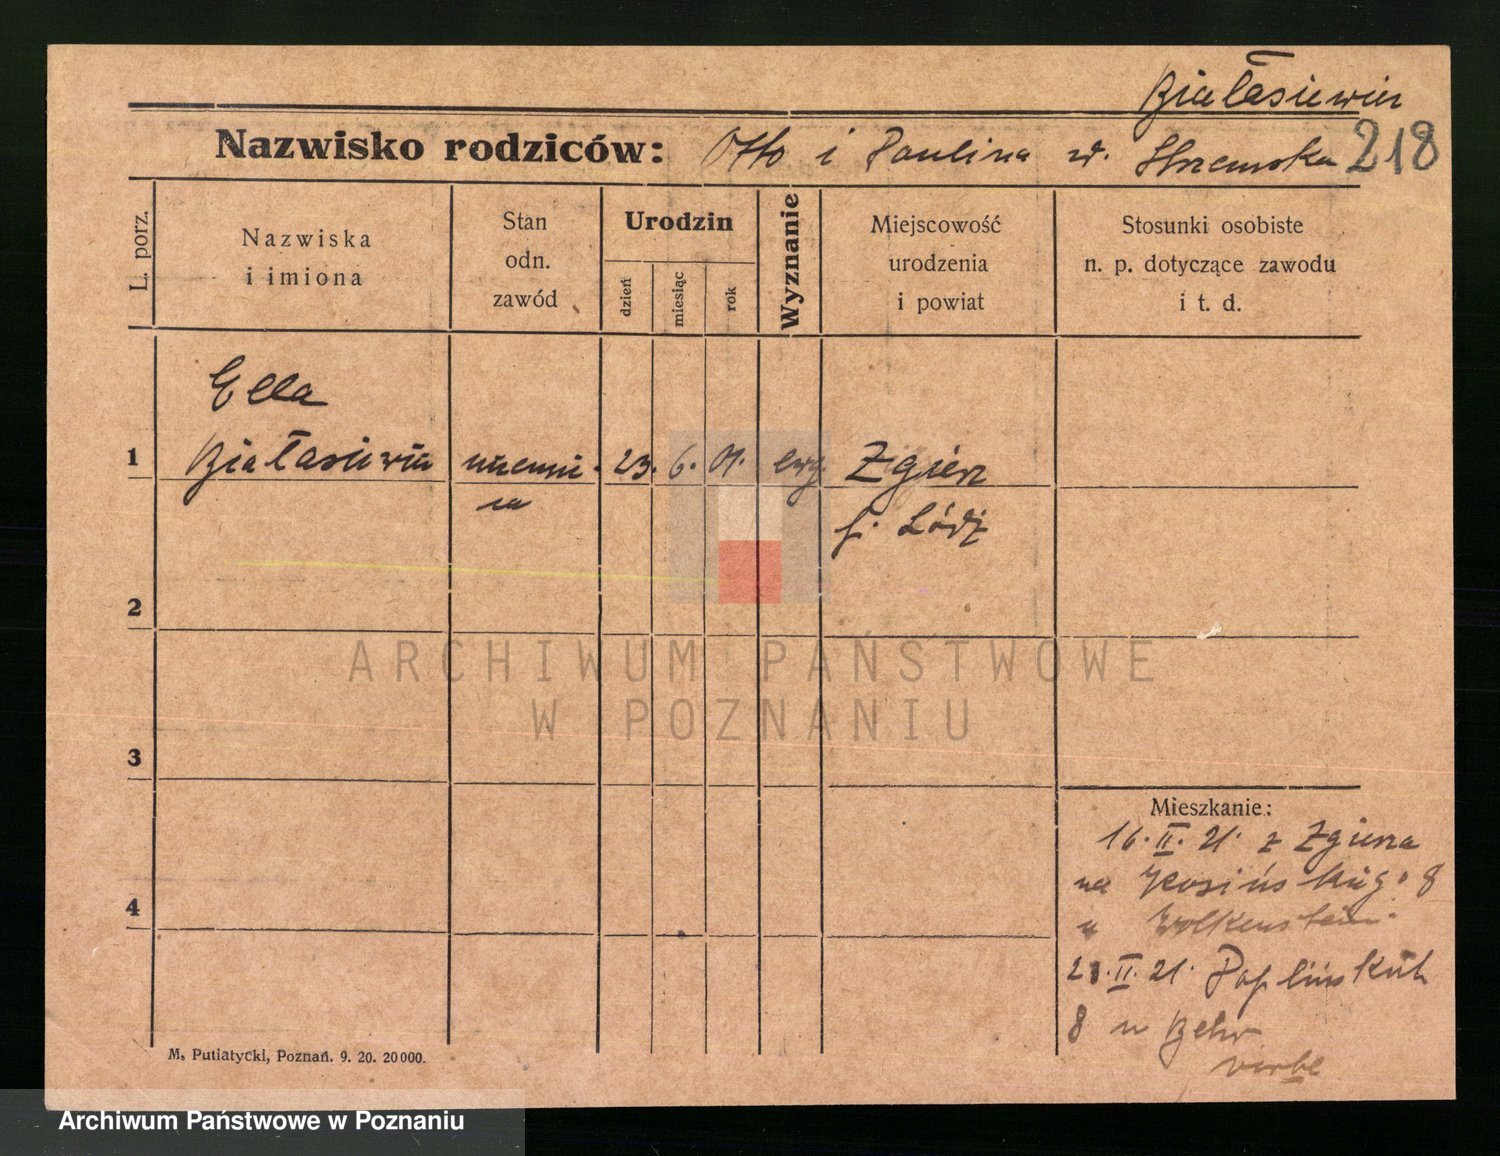 Białasiewicz
Nazwisko rodziców: Otto i Paulina z d. 218
L. porz.
Nazwiska
i imiona
Stan
odn.
zawód
Urodzin
dzień
miesiąc
rok
Wyznanie
Miejscowość
urodzenia
i powiat
Stosunki osobiste
n. p. dotyczące zawodu
i t. d.
Ella
1 Białasiewicz uczenni- 23. 6. 01. ewg. Zgierz
ca p. Łódź
2
3
4
Mieszkanie:
16. II. 21. z Zgierza
na 8
u Wolkenstein
23. II. 21. Poplińskich
8 u
M. Putiatycki, Poznań. 9. 20. 20000.
ARCHIWUM PAŃSTWOWE
W POZNANIU
Archiwum Państwowe w Poznaniu